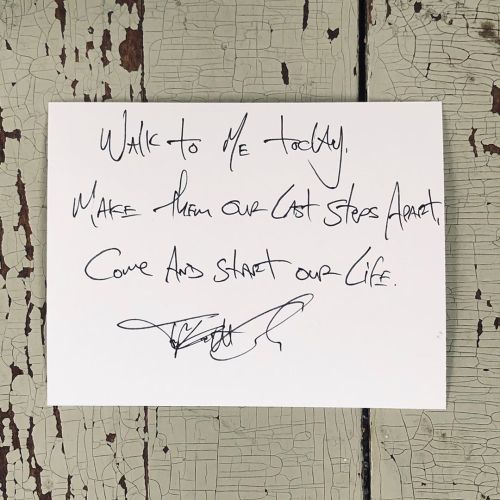 Walk to Me today.
Make them our last steps Apart,
Come And start our Life.